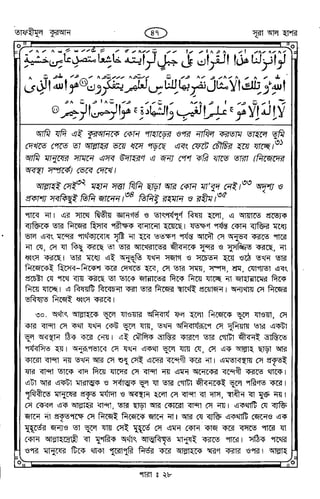 তাফহীমুল কুরআন
৪৭
সূরা আল হাশর
لَوْ أَنْزَلْنَا هٰذَا الْقُرْاٰنَ عَلٰى جَبَلٍ لَّرَاَيْتَهٗ خَاشِعًا مُّتَصَدِّعًا مِّنْ خَشْيَةِ
اللّٰهِ ۚ وَتِلْكَ الْاَمْثَالُ نَضْرِبُهَا لِلنَّاسِ لَعَلَّهُمْ يَتَفَكَّرُوْنَ ۝ هُوَ اللّٰهُ الَّذِيْ
لَا اِلٰهَ اِلَّا هُوَ ۚ عٰلِمُ الْغَيْبِ وَالشَّهَادَةِ ۚ هُوَ الرَّحْمٰنُ الرَّحِيْمُ ۝
আমি যদি এই কুরআনকে কোন পাহাড়ের ওপর নাযিল করতাম তাহলে তুমি
দেখতে পেতে তা আল্লাহর ভয়ে ধসে পড়ছে এবং ফেটে চৌচির হয়ে যাচ্ছে।৩১
আমি মানুষের সামনে এসব উদাহরণ এ জন্য পেশ করি যাতে তারা (নিজেদের
অবস্থা সম্পর্কে) ভেবে দেখে।
আল্লাহই সেই৩২ মহান সত্তা যিনি ছাড়া আর কোন মা'বুদ নেই।৩৩ অদৃশ্য ও
প্রকাশ্য সবকিছুই তিনি জানেন।৩৪ তিনিই রহমান ও রহীম।৩৫
পারে না। এর সাথে দ্বিতীয় জ্ঞানগর্ভ ও তাৎপর্যপূর্ণ বিষয় হলো, এ আয়াতে প্রত্যেক
ব্যক্তিকে তার নিজের হিসাব পরীক্ষক বানানো হয়েছে। যতক্ষণ পর্যন্ত কোন ব্যক্তির মধ্যে
ভাল এবং মন্দের পার্থক্যবোধ সৃষ্টি না হবে ততক্ষণ পর্যন্ত আদৌ সে অনুভব করতে পারে
না যে, সে যা কিছু করছে তা তার আখেরাতের জীবনকে সুন্দর ও সুসজ্জিত করছে, না
ধ্বংস করছে। তার মধ্যে এই অনুভূতি যখন সজাগ ও সচেতন হয়ে ওঠে তখন তার
নিজেকেই হিসেব-নিকেশ করে দেখতে হবে, সে তার সময়, সম্পদ, শ্রম, যোগ্যতা এবং
প্রচেষ্টা যে পথে ব্যয় করছে তা তাকে জান্নাতের দিকে নিয়ে যাচ্ছে না জাহান্নামের দিকে
নিয়ে যাচ্ছে। এ বিষয়টি বিবেচনা করা তার নিজের স্বার্থেই প্রয়োজন। অন্যথায় সে নিজের
ভবিষ্যত নিজেই ধ্বংস করবে।
৩০. অর্থাৎ আল্লাহকে ভুলে যাওয়ার অনিবার্য ফল হলো নিজেকে ভুলে যাওয়া, সে
কার বান্দা সে কথা যখন কেউ ভুলে যায়, তখন অনিবার্যরূপে সে দুনিয়ায় তার একটা
ভুল অবস্থান ঠিক করে নেয়। এই মৌলিক ভ্রান্তির কারণে তার গোটা জীবনই ভ্রান্তিতে
পর্যবসিত হয়। অনুরূপভাবে সে যখন একথা ভুলে যায় যে, সে এক আল্লাহ ছাড়া আর
কারো বান্দা নয় তখন আর সে শুধু সেই একের বন্দেগী করে না। এমতাবস্থায় সে প্রকৃতই
যার বান্দা তাকে বাদ দিয়ে যাদের সে বান্দা নয় এমন অনেকের বন্দেগী করতে থাকে।
এটা আর একটা মারাত্মক ও সর্বাত্মক ভুল যা তার গোটা জীবনকেই ভুলে পরিণত করে।
পৃথিবীতে মানুষের প্রকৃত মর্যাদা ও অবস্থান হলো সে বান্দা বা দাস, স্বাধীন বা মুক্ত নয়।
সে কেবল এক আল্লাহর বান্দা, তার ছাড়া আর কারো বান্দা সে নয়। একথাটি যে ব্যক্তি
জানে না প্রকৃতপক্ষে সে নিজেই নিজেকে জানে না। আর যে ব্যক্তি একথাটি জেনেও এক
মুহূর্তের জন্যও তা ভুলে যায় সেই মুহূর্তে সে এমন কোন কাজ করে বসতে পারে যা
কোন আল্লাহদ্রোহী বা মুশরিক অর্থাৎ আত্মবিস্মৃত মানুষই করতে পারে। সঠিক পথের
ওপর মানুষের টিকে থাকা পুরোপুরি নির্ভর করে আল্লাহকে স্মরণ করার ওপর। আল্লাহ
পারা : ২৮